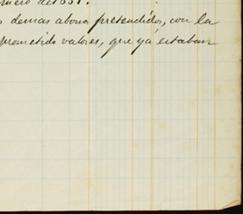 de 1851.
demas abono pretendidos, con la
prometido valores, que ya estaban